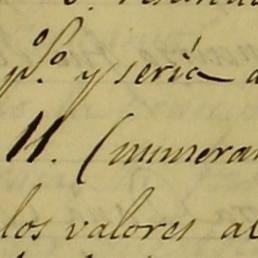 pº. y seria
11. (numera
los valores al